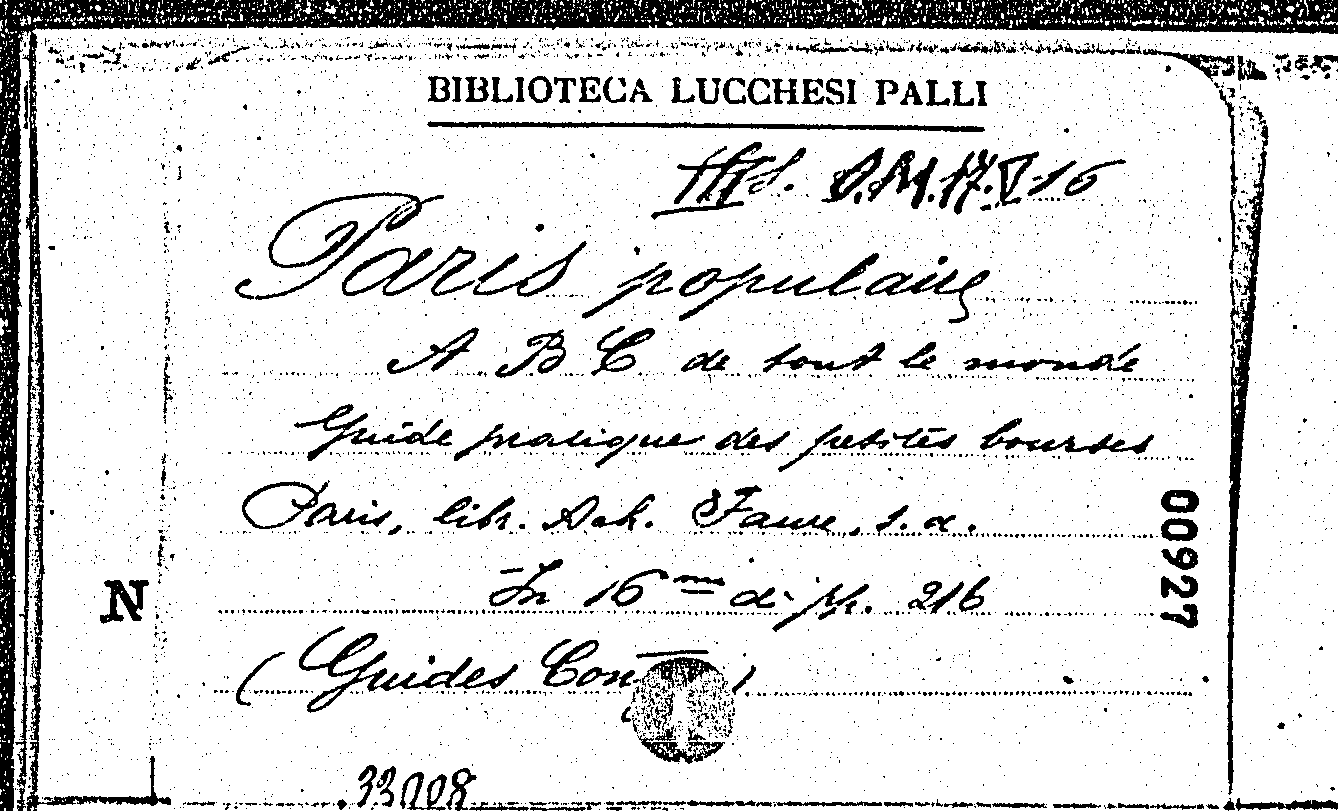 BIBLIOTECA LUCCHESI PALLI
16
Paris populaire
A B C de tout le monde
Guide pratique des petites bourses
Paris, libr. Ach. Faure, s. a.
In 16 me di pp. 216
(Guides
00927
N
33008